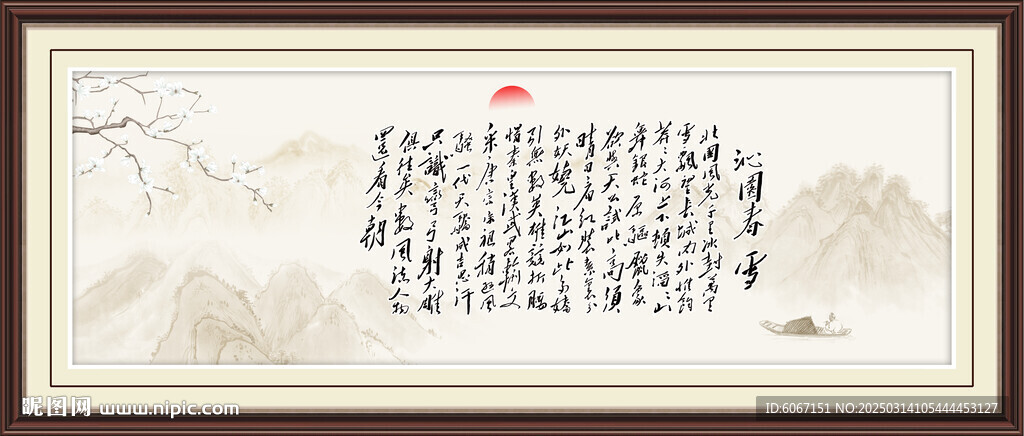 沁園春 雪
北國風光千里冰封萬里
雪飄望長城内外惟餘
莽〻大河上下頓失滔〻山
舞銀蛇原驅臘象
欲與天公試比高須
晴日看紅裝素裹分
外妖嬈江山如此多嬌
引無數英雄競折腰
惜秦皇漢武略輸文
采唐宗宋祖稍遜風
騷一代天驕成吉思汗
只識彎弓射大雕
俱往矣數風流人物
還看今朝
昵图网 www.nipic.com
ID:6067151 NO:20250314105444453127